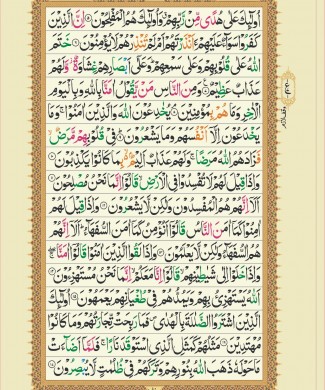 اُولٰٓئِكَ عَلٰى هُدًى مِّنْ رَّبِّهِمْ وَاُولٰٓئِكَ هُمُ الْمُفْلِحُوْنَ ۝ اِنَّ الَّذِيْنَ
كَفَرُوْا سَوَآءٌ عَلَيْهِمْ ءَاَنْذَرْتَهُمْ اَمْ لَمْ تُنْذِرْهُمْ لَا يُؤْمِنُوْنَ ۝ خَتَمَ
اللّٰهُ عَلٰى قُلُوْبِهِمْ وَعَلٰى سَمْعِهِمْ وَعَلٰٓى اَبْصَارِهِمْ غِشَاوَةٌ وَّلَهُمْ
عَذَابٌ عَظِيْمٌ ۝ وَمِنَ النَّاسِ مَنْ يَّقُوْلُ اٰمَنَّا بِاللّٰهِ وَبِالْيَوْمِ
الْاٰخِرِ وَمَا هُمْ بِمُؤْمِنِيْنَ ۝ يُخٰدِعُوْنَ اللّٰهَ وَالَّذِيْنَ اٰمَنُوْا وَمَا
يَخْدَعُوْنَ اِلَّآ اَنْفُسَهُمْ وَمَا يَشْعُرُوْنَ ۝ فِيْ قُلُوْبِهِمْ مَّرَضٌ
فَزَادَهُمُ اللّٰهُ مَرَضًا وَلَهُمْ عَذَابٌ اَلِيْمٌ بِمَا كَانُوْا يَكْذِبُوْنَ ۝
وَاِذَا قِيْلَ لَهُمْ لَا تُفْسِدُوْا فِي الْاَرْضِ قَالُوْٓا اِنَّمَا نَحْنُ مُصْلِحُوْنَ ۝
اَلَآ اِنَّهُمْ هُمُ الْمُفْسِدُوْنَ وَلٰكِنْ لَّا يَشْعُرُوْنَ ۝ وَاِذَا قِيْلَ لَهُمْ
اٰمِنُوْا كَمَآ اٰمَنَ النَّاسُ قَالُوْٓا اَنُؤْمِنُ كَمَآ اٰمَنَ السُّفَهَآءُ اَلَآ اِنَّهُمْ
هُمُ السُّفَهَآءُ وَلٰكِنْ لَّا يَعْلَمُوْنَ ۝ وَاِذَا لَقُوا الَّذِيْنَ اٰمَنُوْا قَالُوْٓا اٰمَنَّا
وَاِذَا خَلَوْا اِلٰى شَيٰطِيْنِهِمْ قَالُوْٓا اِنَّا مَعَكُمْ اِنَّمَا نَحْنُ مُسْتَهْزِءُوْنَ ۝
اَللّٰهُ يَسْتَهْزِئُ بِهِمْ وَيَمُدُّهُمْ فِيْ طُغْيَانِهِمْ يَعْمَهُوْنَ ۝ اُولٰٓئِكَ
الَّذِيْنَ اشْتَرَوُا الضَّلٰلَةَ بِالْهُدٰى فَمَا رَبِحَتْ تِّجَارَتُهُمْ وَمَا كَانُوْا
مُهْتَدِيْنَ ۝ مَثَلُهُمْ كَمَثَلِ الَّذِي اسْتَوْقَدَ نَارًا فَلَمَّآ اَضَآءَتْ
مَا حَوْلَهٗ ذَهَبَ اللّٰهُ بِنُوْرِهِمْ وَتَرَكَهُمْ فِيْ ظُلُمٰتٍ لَّا يُبْصِرُوْنَ ۝